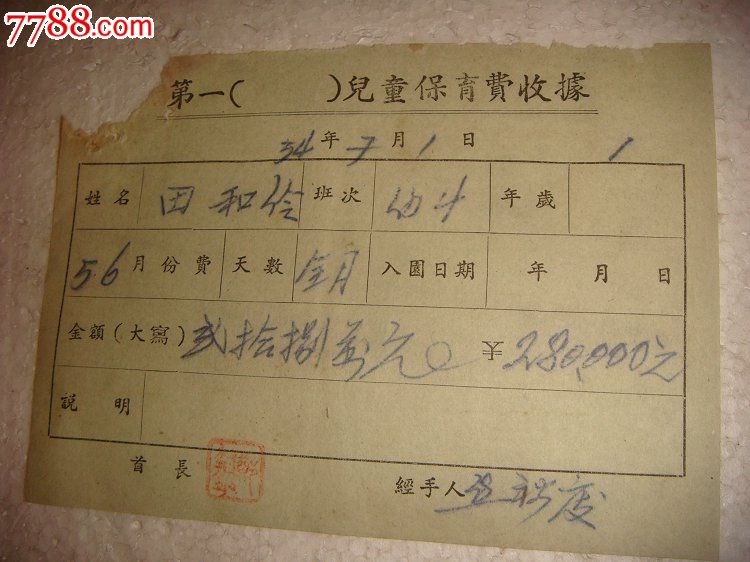 7788.com
第一(　　　)兒童保育費收據
54年7月1日 1
姓名 田和伦 班次 幼小 年歲
5.6月份費 天數 全月 入園日期 年 月 日
金額(大寫) 弍拾捌萬元 ¥280,000元
說明
首長
經手人